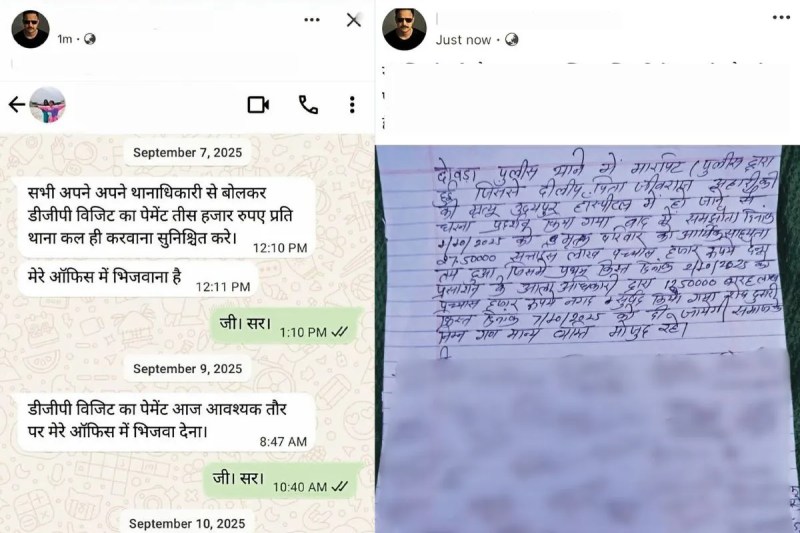 1m
September 7, 2025
सभी अपने अपने थानाधिकारी से बोलकर
डीजीपी विजिट का पेमेंट तीस हजार रुपए प्रति
थाना कल ही करवाना सुनिश्चित करे।
12:10 PM
मेरे ऑफिस में भिजवाना है
12:11 PM
जी। सर।
1:10 PM
September 9, 2025
डीजीपी विजिट का पेमेंट आज आवश्यक तौर
पर मेरे ऑफिस में भिजवा देना।
8:47 AM
जी। सर।
10:40 AM
September 10, 2025
Just now
पुलीस थाने में मारपिट (पुलीस द्वारा
हुई जिससे दीलीप पिता जीवराज
की मृत्यु उदयपुर हॉस्पीटल में हो जाने से
धरना प्रदर्शन किया गया बाद में समझौता दिनांक
2/10/2025 को मृतक परिवार को आर्थिक सहायता
2750000 सताईस लाख पच्चास हजार रूपये देना
तय हुआ जिसमें प्रथम किस्त दिनांक 2/10/2025 को
के द्वारा 1250000 बारह लाख
पच्चास हजार रूपये नगद सुपुर्द किया गया शेष दुसरी
किस्त दिनांक 7/10/2025 को दी जायेगी
निम्न गण मान्य व्यक्ति मौजुद रहे।